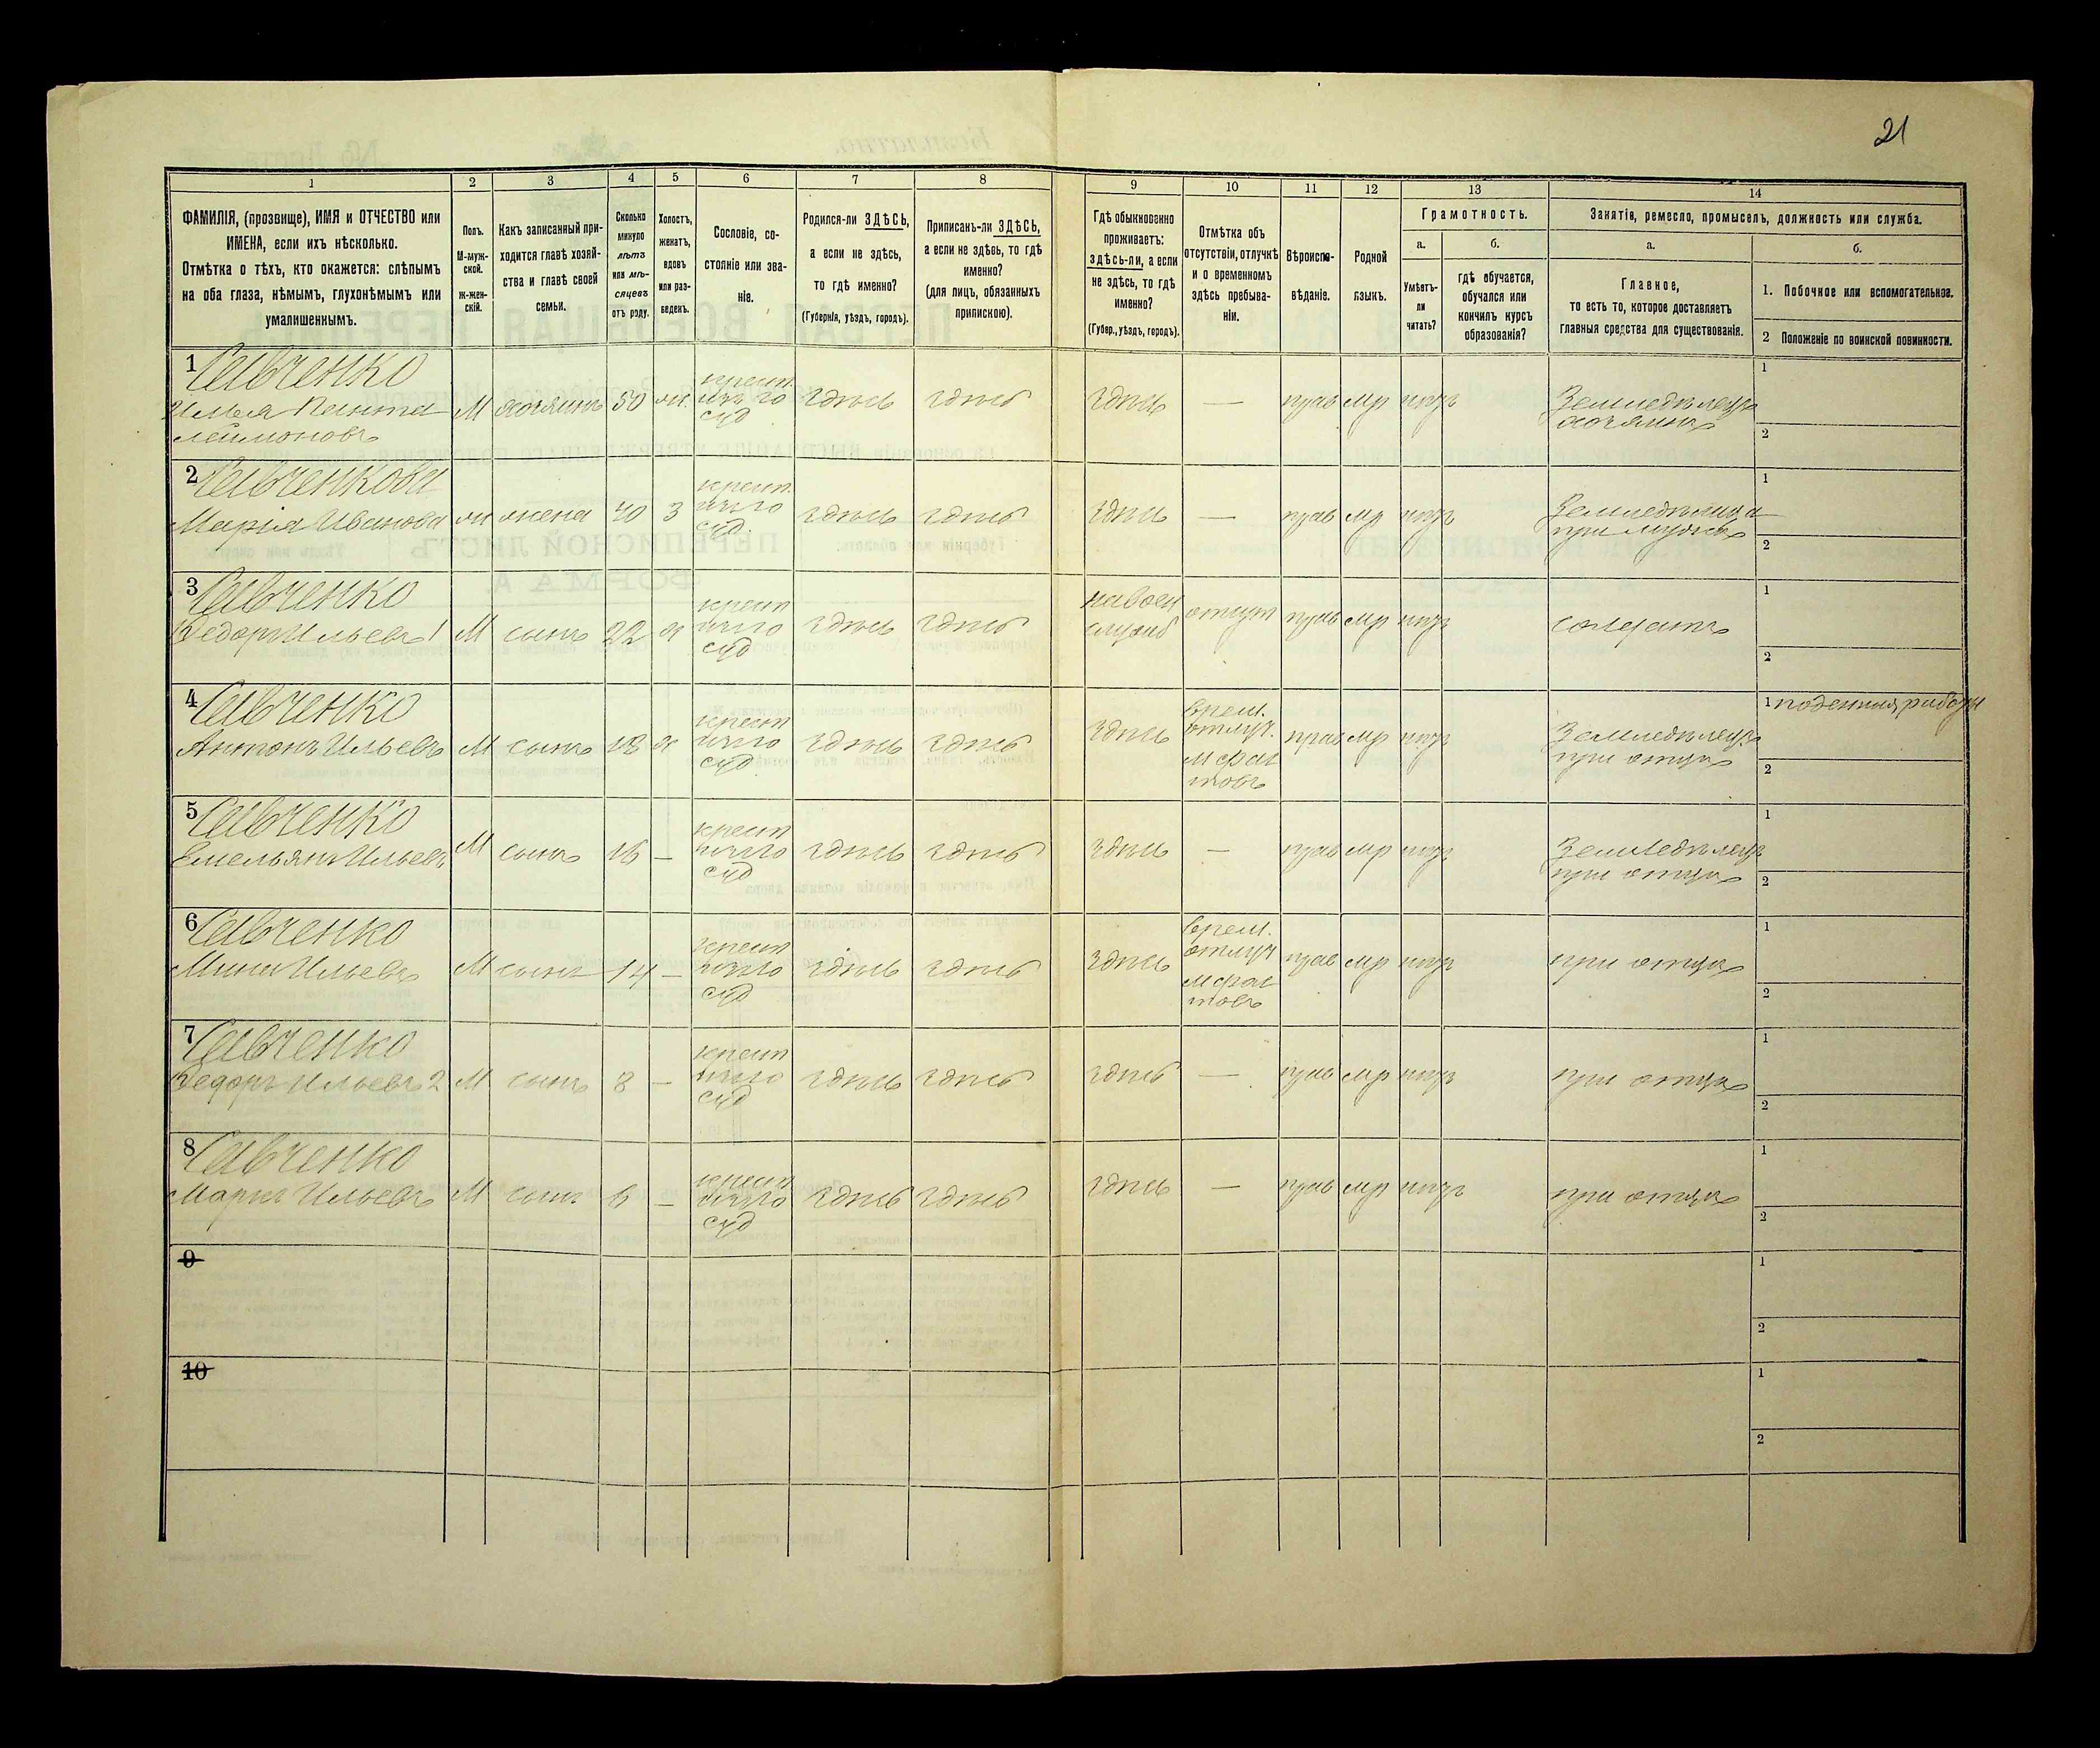 21
1 2 3 4 5 6 7 8 9 10 11 12 13 14
ФАМИЛІЯ, (прозвище), ИМЯ и ОТЧЕСТВО или
ИМЕНА, если ихъ нѣсколько.
Отмѣтка о тѣхъ, кто окажется: слѣпымъ
на оба глаза, нѣмымъ, глухонѣмымъ или
умалишеннымъ.
Полъ.
М-муж-
ской.
Ж-жен-
скій.
Какъ записанный при-
ходится главѣ хозяй-
ства и главѣ своей
семьи.
Сколько
минуло
лѣтъ
или мѣ-
сяцевъ
отъ роду.
Холостъ,
женатъ,
вдовъ
или раз-
веденъ.
Сословіе, со-
стояніе или зва-
ніе.
Родился-ли ЗДѢСЬ,
а если не здѣсь,
то гдѣ именно?
(Губернія, уѣздъ, городъ).
Приписанъ-ли ЗДѢСЬ,
а если не здѣсь, то гдѣ
именно?
(для лицъ, обязанныхъ
припискою).
Гдѣ обыкновенно
проживаетъ:
здѣсь-ли, а если
не здѣсь, то гдѣ
именно?
(Губер., уѣздъ, городъ).
Отмѣтка объ
отсутствіи, отлучкѣ
и о временномъ
здѣсь пребыва-
ніи.
Вѣроиспо-
вѣданіе.
Родной
языкъ.
Грамотность.
а.
Умѣетъ-
ли
читать?
б.
гдѣ обучается,
обучался или
кончилъ курсъ
образованія?
Занятіе, ремесло, промыселъ, должность или служба.
а.
Главное,
то есть то, которое доставляетъ
главныя средства для существованія.
б.
1. Побочное или вспомогательное.
2 Положеніе по воинской повинности.
1 Савченко
Илья Панте
леймоновъ
М хозяинъ 50 жн.
крест.
изъ го
суд
здѣсь здѣсь здѣсь — прав мр нѣтъ
Земледѣлецъ
хозяинъ
1
2
2 Савченкова
Марія Иванова
жн жена 40 З
крест.
суд.
здѣсь здѣсь здѣсь — прав мр нѣтъ
Земледѣлица
при мужѣ
1
2
3 Савченко
Федоръ Ильевъ 1
М сынъ 22
крест
суд
здѣсь здѣсь
на воен
служб
отсут прав мр нѣтъ
солдатъ
1
2
4 Савченко
Антонъ Ильевъ
М сынъ 18
крест
суд
здѣсь здѣсь здѣсь
врем.
отлуч.
прав мр нѣтъ
Земледѣлецъ
при отцѣ
1 поденныя работы
2
5 Савченко
Емельянъ Ильевъ
М сынъ 16 —
крест
суд
здѣсь здѣсь здѣсь — прав мр нѣтъ
Земледѣлецъ
при отцѣ
1
2
6 Савченко
Мина Ильевъ
М сынъ 14 —
крест
суд
здѣсь здѣсь здѣсь
врем.
отлуч
прав мр нѣтъ
при отцѣ
1
2
7 Савченко
Федоръ Ильевъ 2
М сынъ 8 —
крест
суд
здѣсь здѣсь здѣсь — прав мр нѣтъ
при отцѣ
1
2
8 Савченко
Маркъ Ильевъ
М сынъ 6 —
крест
суд
здѣсь здѣсь здѣсь — прав мр нѣтъ
при отцѣ
1
2
9
1
2
10
1
2